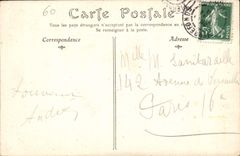 60
Carte Postale
Tous les pays étrangers n'acceptent pas la correspondance au recto
Se renseigner à la poste
Correspondance
Adresse
Mlle M.
142 Avenue de Versailles
Paris 16e
Souvenir
André